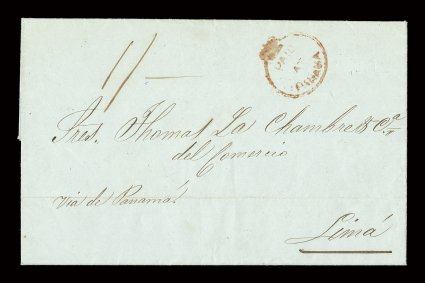 1/-
PAID
AT
Sres. Thomas La Chambre & Cª
del Comercio
Via de Panamá
Lima